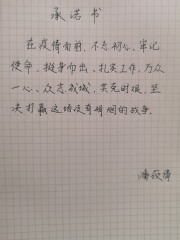 承诺书
在疫情面前，不忘初心、牢记
使命，挺身而出、扎实工作，万众
一心、众志成城，共克时艰，坚
决打赢这场没有硝烟的战争。
潘